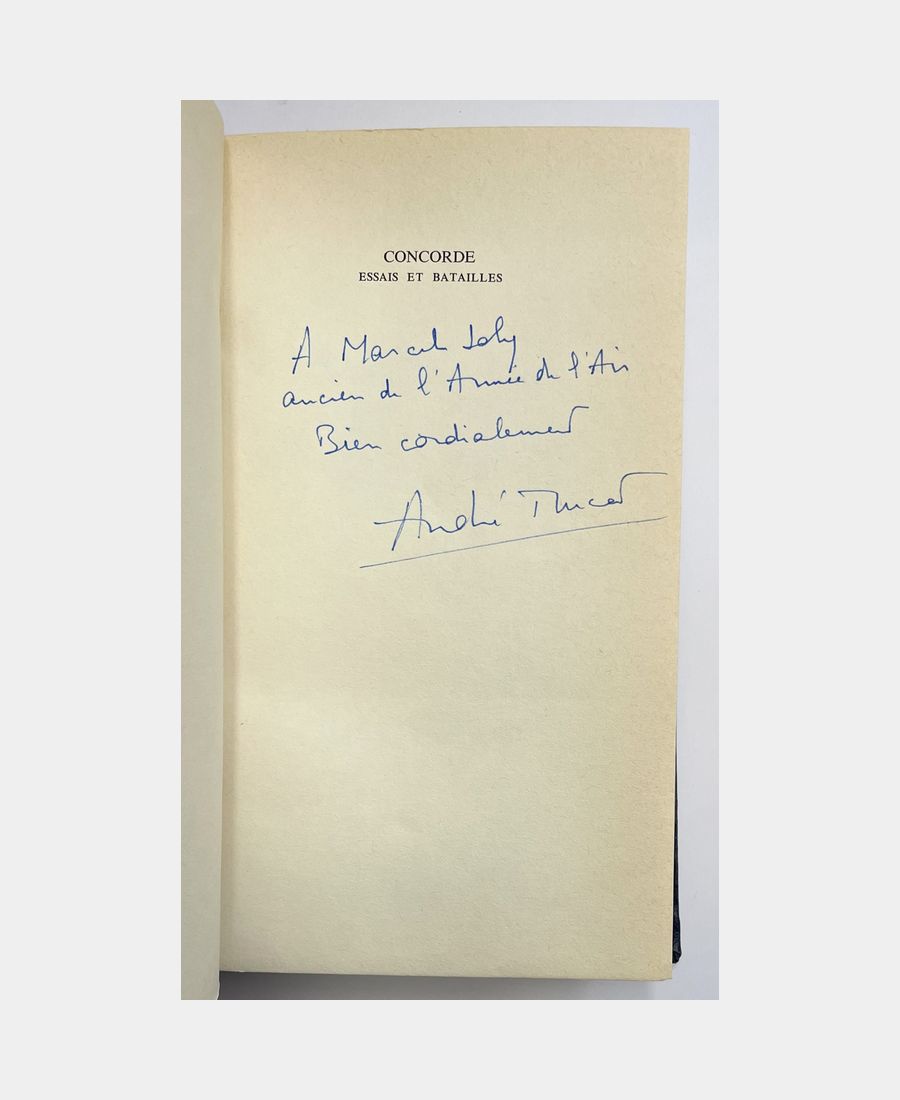 CONCORDE
ESSAIS ET BATAILLES
A Marcel Joly
ancien de l'Armée de l'Air
Bien cordialement
André Turcat